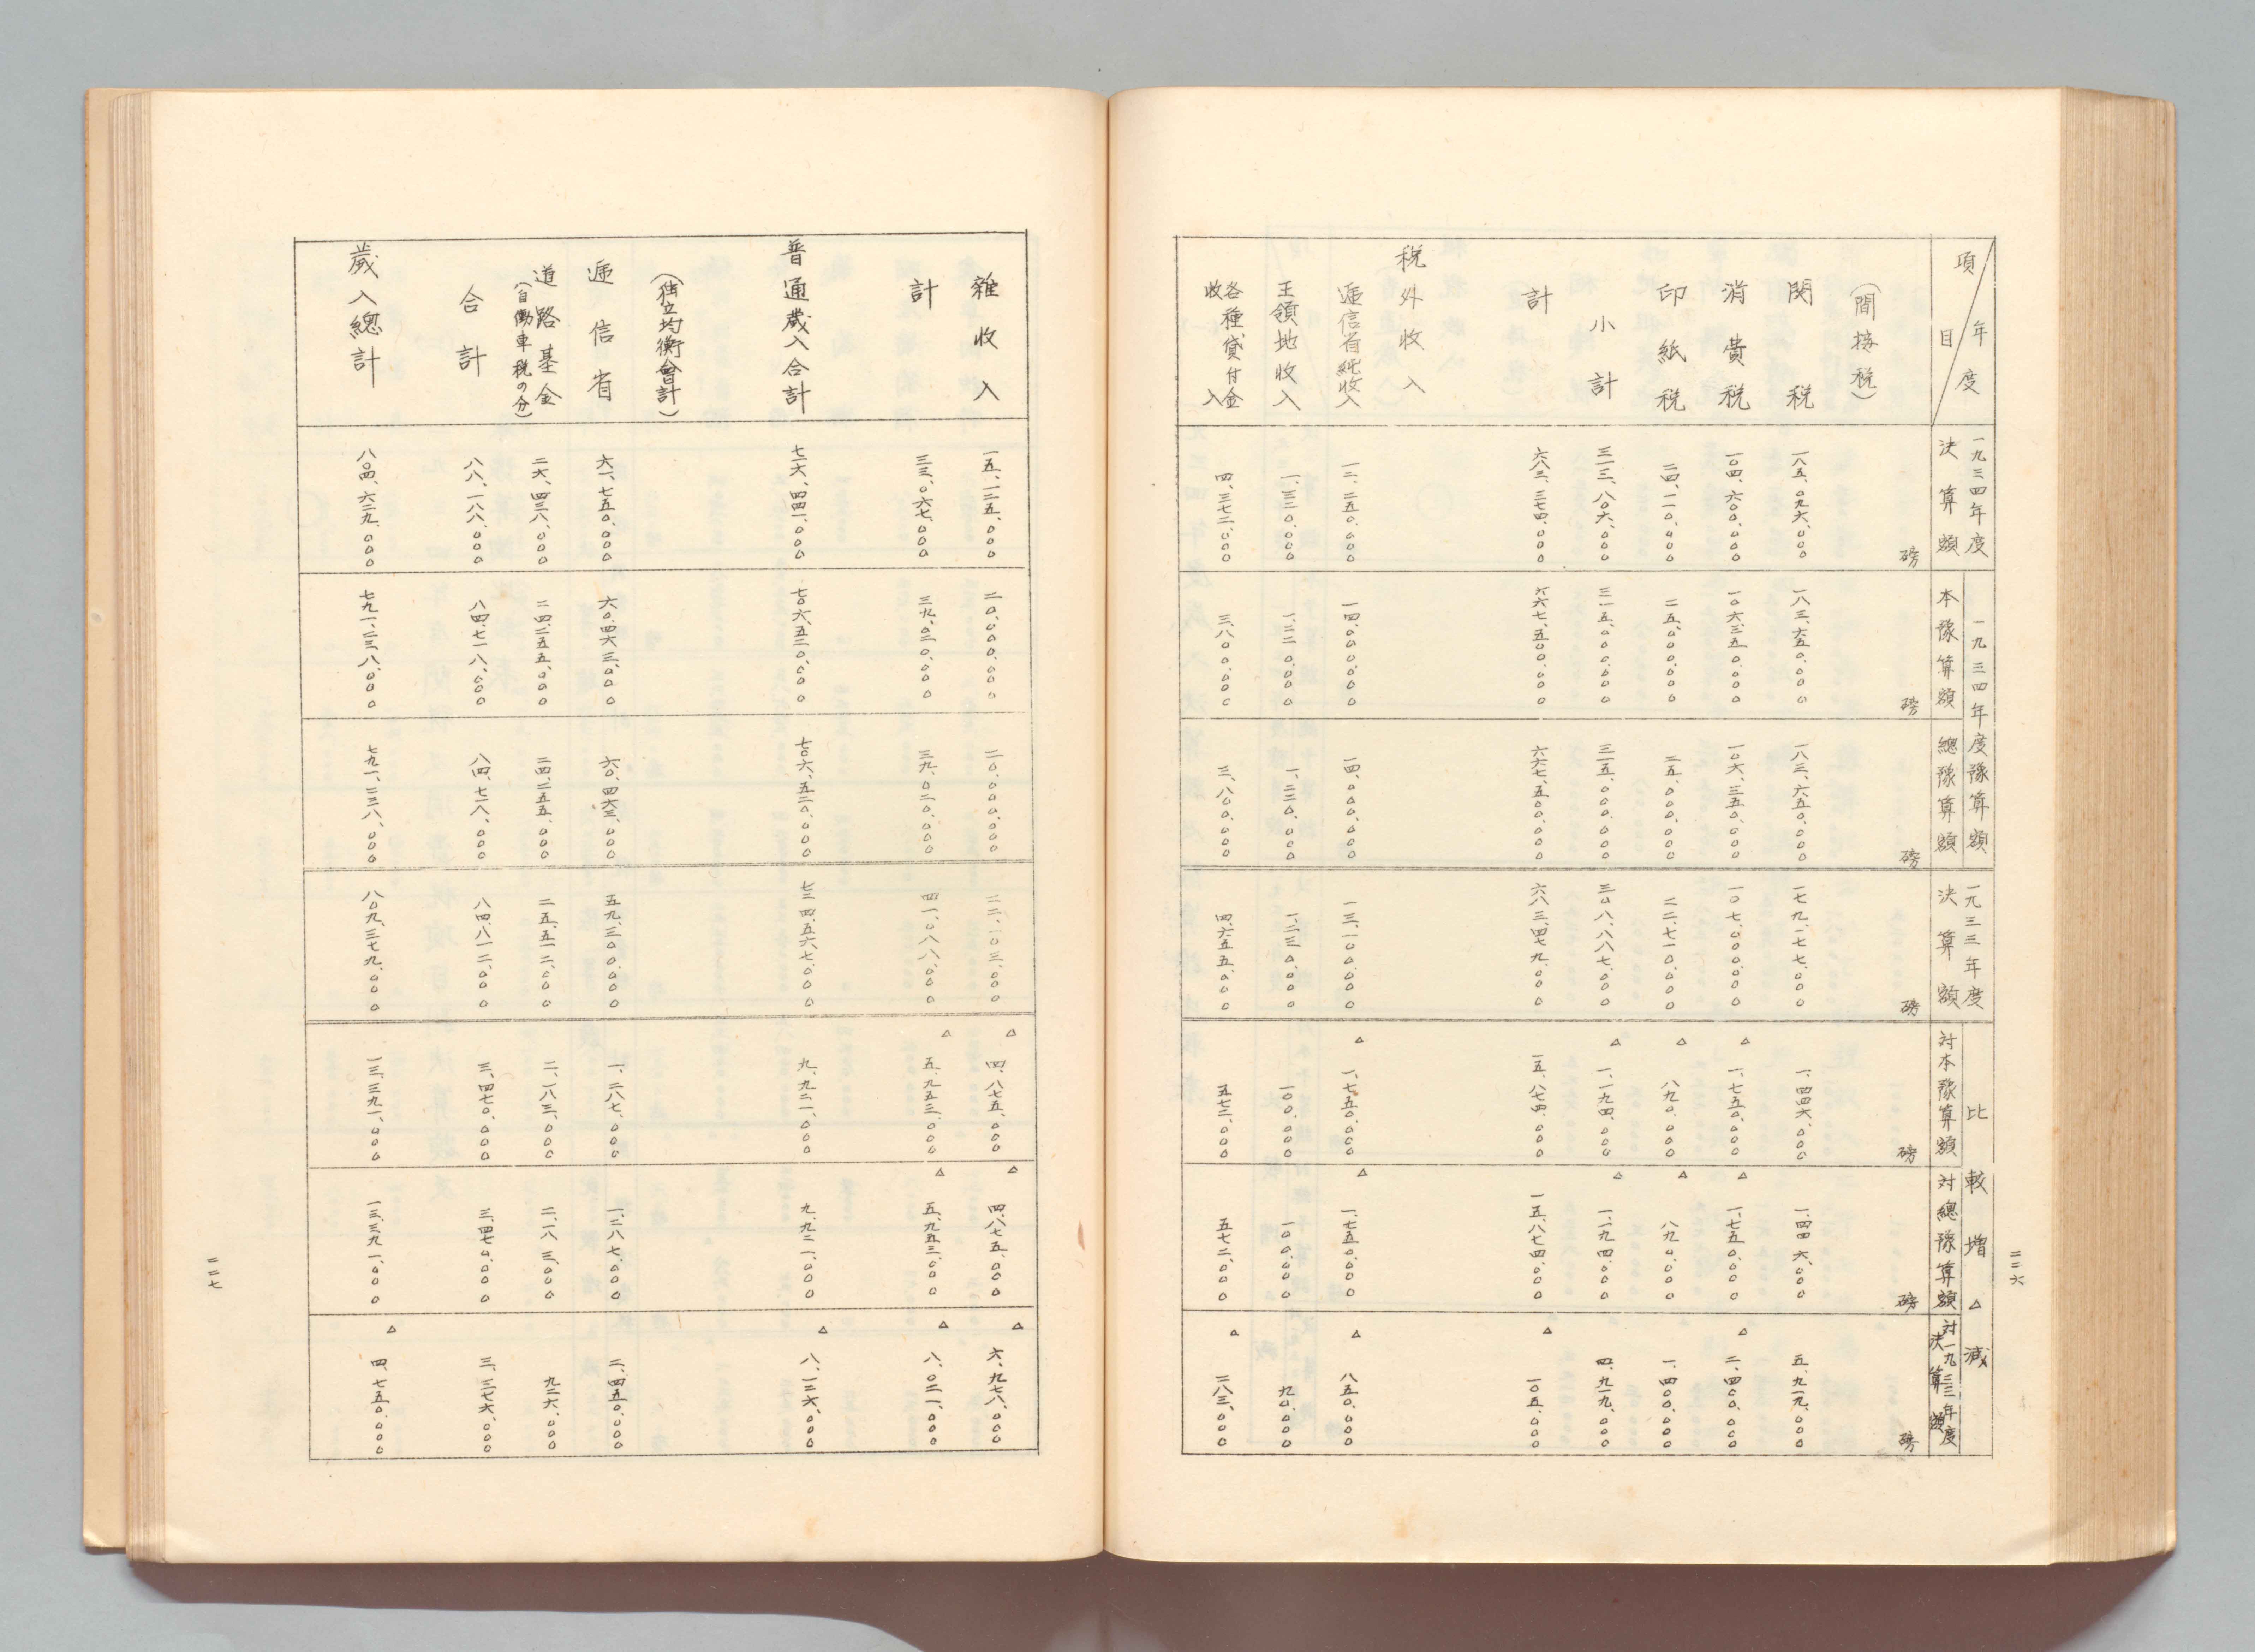 二二六
項目 年度
一九三四年度 一九三四年度豫算額 一九三三年度 比較増△減
決算額 本豫算額 總豫算額 決算額 対本豫算額 対總豫算額 対一九三三年度決算額
磅 磅 磅 磅 磅 磅 磅
(間接税)
関税 一八五、〇九六、〇〇〇 一八三、六五〇、〇〇〇 一八三、六五〇、〇〇〇 一七九、一七七、〇〇〇 一、四四六、〇〇〇 一、四四六、〇〇〇 五、九一九、〇〇〇
消費税 一〇四、六〇〇、〇〇〇 一〇六、三五〇、〇〇〇 一〇六、三五〇、〇〇〇 一〇七、〇〇〇、〇〇〇 △一、七五〇、〇〇〇 △一、七五〇、〇〇〇 △二、四〇〇、〇〇〇
印紙税 二四、一一〇、〇〇〇 二五、〇〇〇、〇〇〇 二五、〇〇〇、〇〇〇 二二、七一〇、〇〇〇 △八九〇、〇〇〇 △八九〇、〇〇〇 一、四〇〇、〇〇〇
小計 三一三、八〇六、〇〇〇 三一五、〇〇〇、〇〇〇 三一五、〇〇〇、〇〇〇 三〇八、八八七、〇〇〇 △一、一九四、〇〇〇 △一、一九四、〇〇〇 四、九一九、〇〇〇
計 六八三、三七四、〇〇〇 六六七、五〇〇、〇〇〇 六六七、五〇〇、〇〇〇 六八三、四七九、〇〇〇 一五、八七四、〇〇〇 一五、八七四、〇〇〇 △一〇五、〇〇〇
税外收入
逓信省純收入 一二、二五〇、〇〇〇 一四、〇〇〇、〇〇〇 一四、〇〇〇、〇〇〇 一三、一〇〇、〇〇〇 △一、七五〇、〇〇〇 △一、七五〇、〇〇〇 △八五〇、〇〇〇
王領地收入 一、三二〇、〇〇〇 一、二二〇、〇〇〇 一、二二〇、〇〇〇 一、二三〇、〇〇〇 一〇〇、〇〇〇 一〇〇、〇〇〇 九〇、〇〇〇
各種貸付金收入 四、三七二、〇〇〇 三、八〇〇、〇〇〇 三、八〇〇、〇〇〇 四、六五五、〇〇〇 五七二、〇〇〇 五七二、〇〇〇 △二八三、〇〇〇
雜收入 一五、一二五、〇〇〇 二〇、〇〇〇、〇〇〇 二〇、〇〇〇、〇〇〇 二二、一〇三、〇〇〇 △四、八七五、〇〇〇 △四、八七五、〇〇〇 △六、九七八、〇〇〇
計 三三、〇六七、〇〇〇 三九、〇二〇、〇〇〇 三九、〇二〇、〇〇〇 四一、〇八八、〇〇〇 △五、九五三、〇〇〇 △五、九五三、〇〇〇 △八、〇二一、〇〇〇
普通歳入合計 七一六、四四一、〇〇〇 七〇六、五二〇、〇〇〇 七〇六、五二〇、〇〇〇 七二四、五六七、〇〇〇 九、九二一、〇〇〇 九、九二一、〇〇〇 △八、一二六、〇〇〇
(独立均衡會計)
逓信省 六一、七五〇、〇〇〇 六〇、四六三、〇〇〇 六〇、四六三、〇〇〇 五九、三〇〇、〇〇〇 一、二八七、〇〇〇 一、二八七、〇〇〇 二、四五〇、〇〇〇
道路基金(自働車税の分) 二六、四三八、〇〇〇 二四、二五五、〇〇〇 二四、二五五、〇〇〇 二五、五一二、〇〇〇 二、一八三、〇〇〇 二、一八三、〇〇〇 九二六、〇〇〇
合計 八八、一八八、〇〇〇 八四、七一八、〇〇〇 八四、七一八、〇〇〇 八四、八一二、〇〇〇 三、四七〇、〇〇〇 三、四七〇、〇〇〇 三、三七六、〇〇〇
歳入總計 八〇四、六二九、〇〇〇 七九一、二三八、〇〇〇 七九一、二三八、〇〇〇 八〇九、三七九、〇〇〇 一三、三九一、〇〇〇 一三、三九一、〇〇〇 △四、七五〇、〇〇〇
二二七